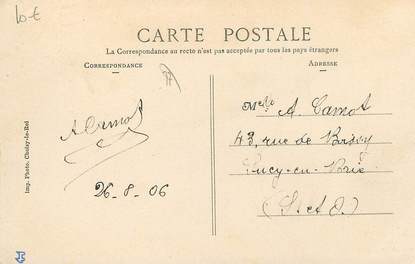 lot
CARTE POSTALE
La Correspondance au recto n'est pas acceptée par tous les pays étrangers
CORRESPONDANCE
ADRESSE
Melle A. Carnot
43, rue de Boissy
Sucy-en-Brie
(S. et O.)
A Carnot
26-8-06
Imp. Photo. Choisy-le-Roi